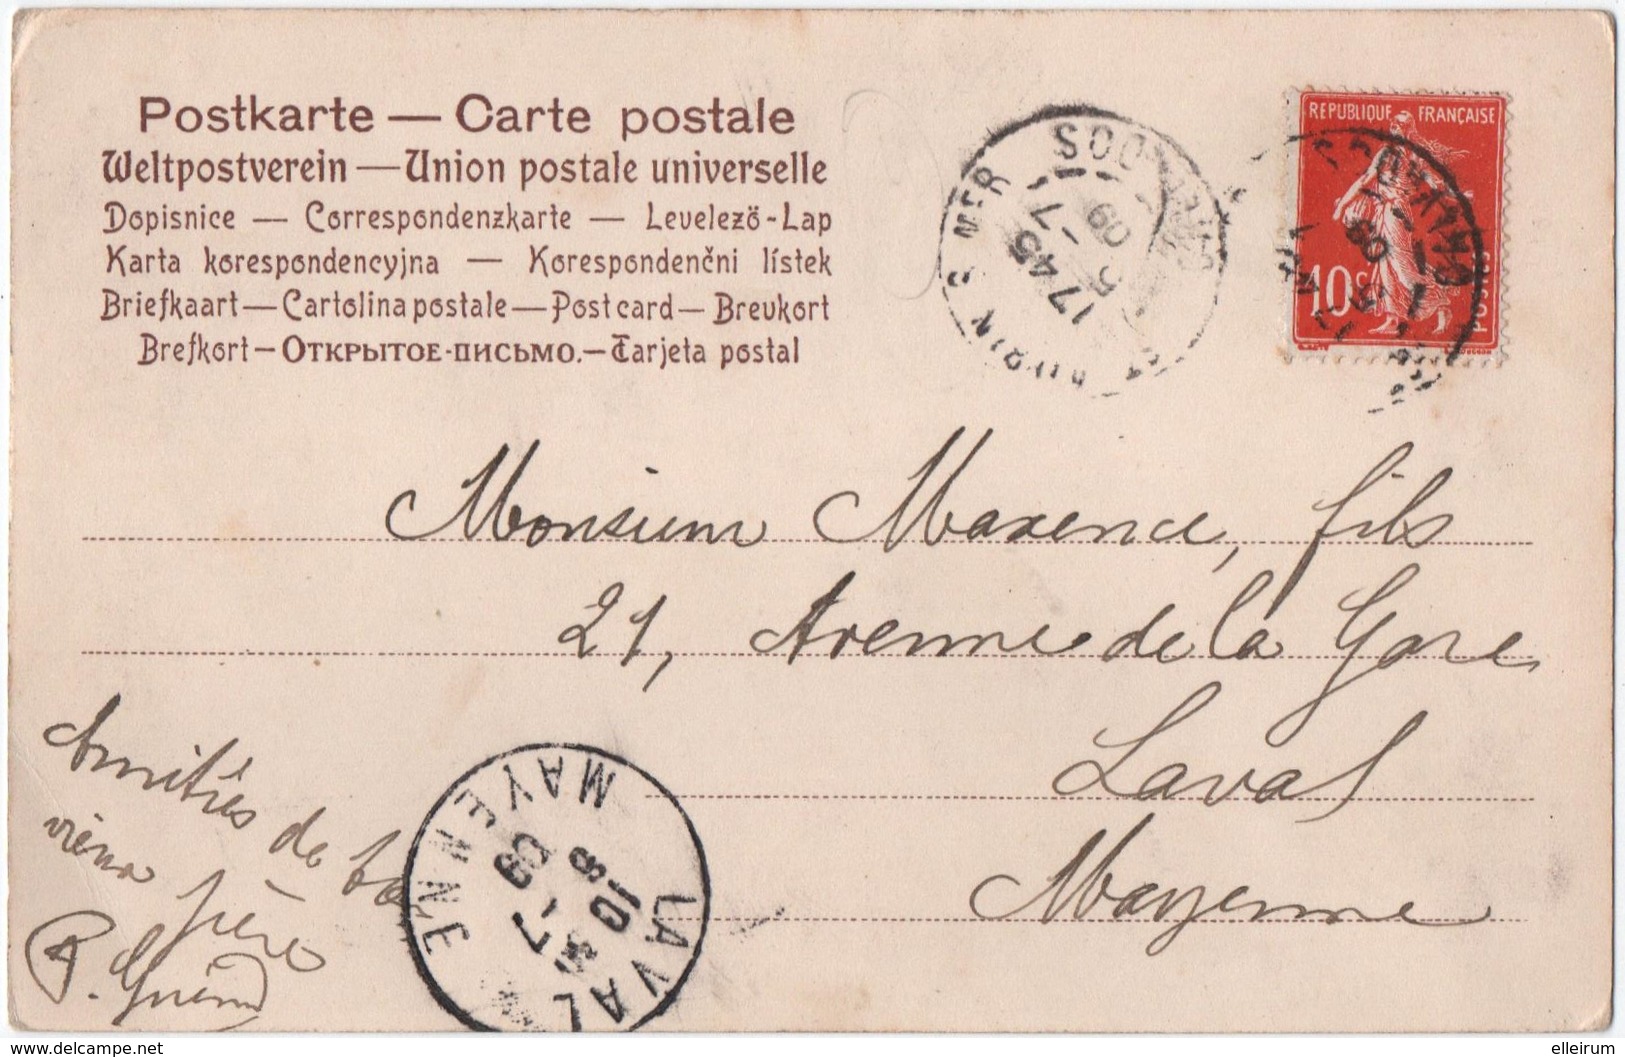 Postkarte — Carte postale
Weltpostverein — Union postale universelle
Dopisnice — Correspondenzkarte — Levelezö-Lap
Karta korespondencyjna — Korespondenčni lístek
Briefkaart — Cartolina postale — Post card — Brevkort
Brefkort — Открытое-письмо. — Tarjeta postal
MER
17 45
5 -7
09
REPUBLIQUE FRANÇAISE
10c
POSTES
Monsieur Maxence, fils
21, Avenue de la Gare
Laval
Mayenne
Amitiés de
père
P. Guérin
LAVAL
MAYENNE
8 10
-7
09
delcampe.net
elleirum